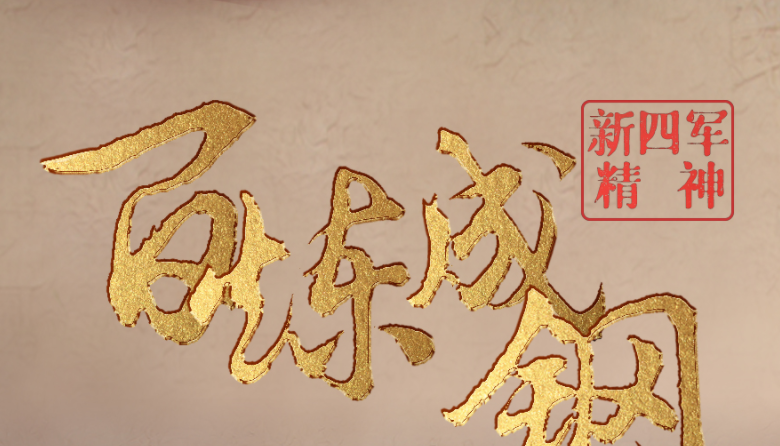 百炼成钢
新四军
精神